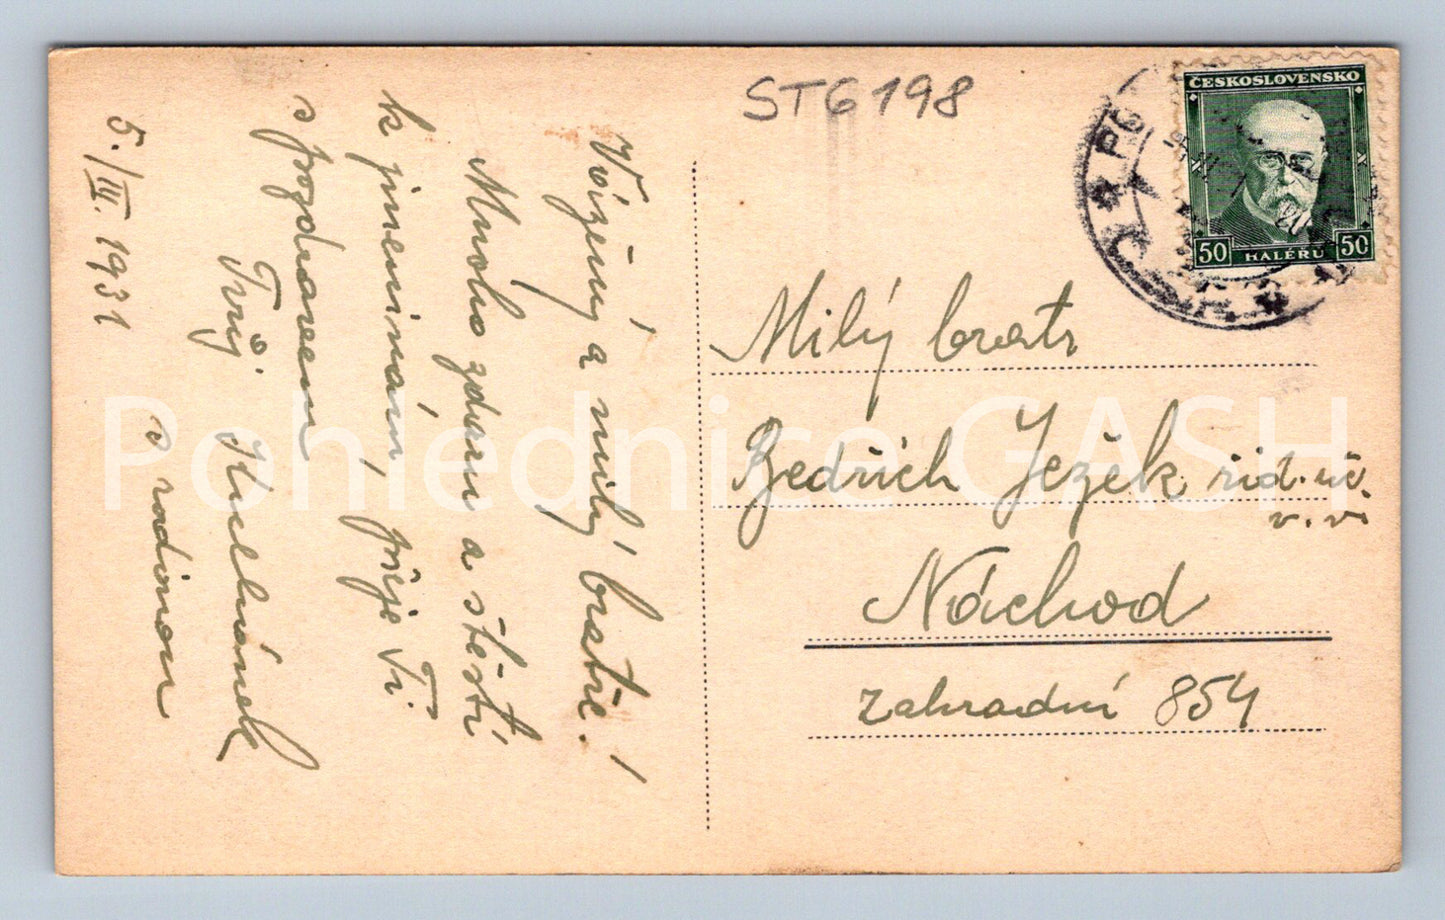 ST6198
ČESKOSLOVENSKO
50 HALÉŘŮ 50
Vážený a milý bratře!
Mnoho zdaru a štěstí
k jmeninám, přeje Ti
s pozdravem
Tvůj
s rodinou
5./III. 1931
Milý bratr
Bedřich Ježek říd. uč.
v. v.
Náchod
Zahradní 854
Pohlednice GASH